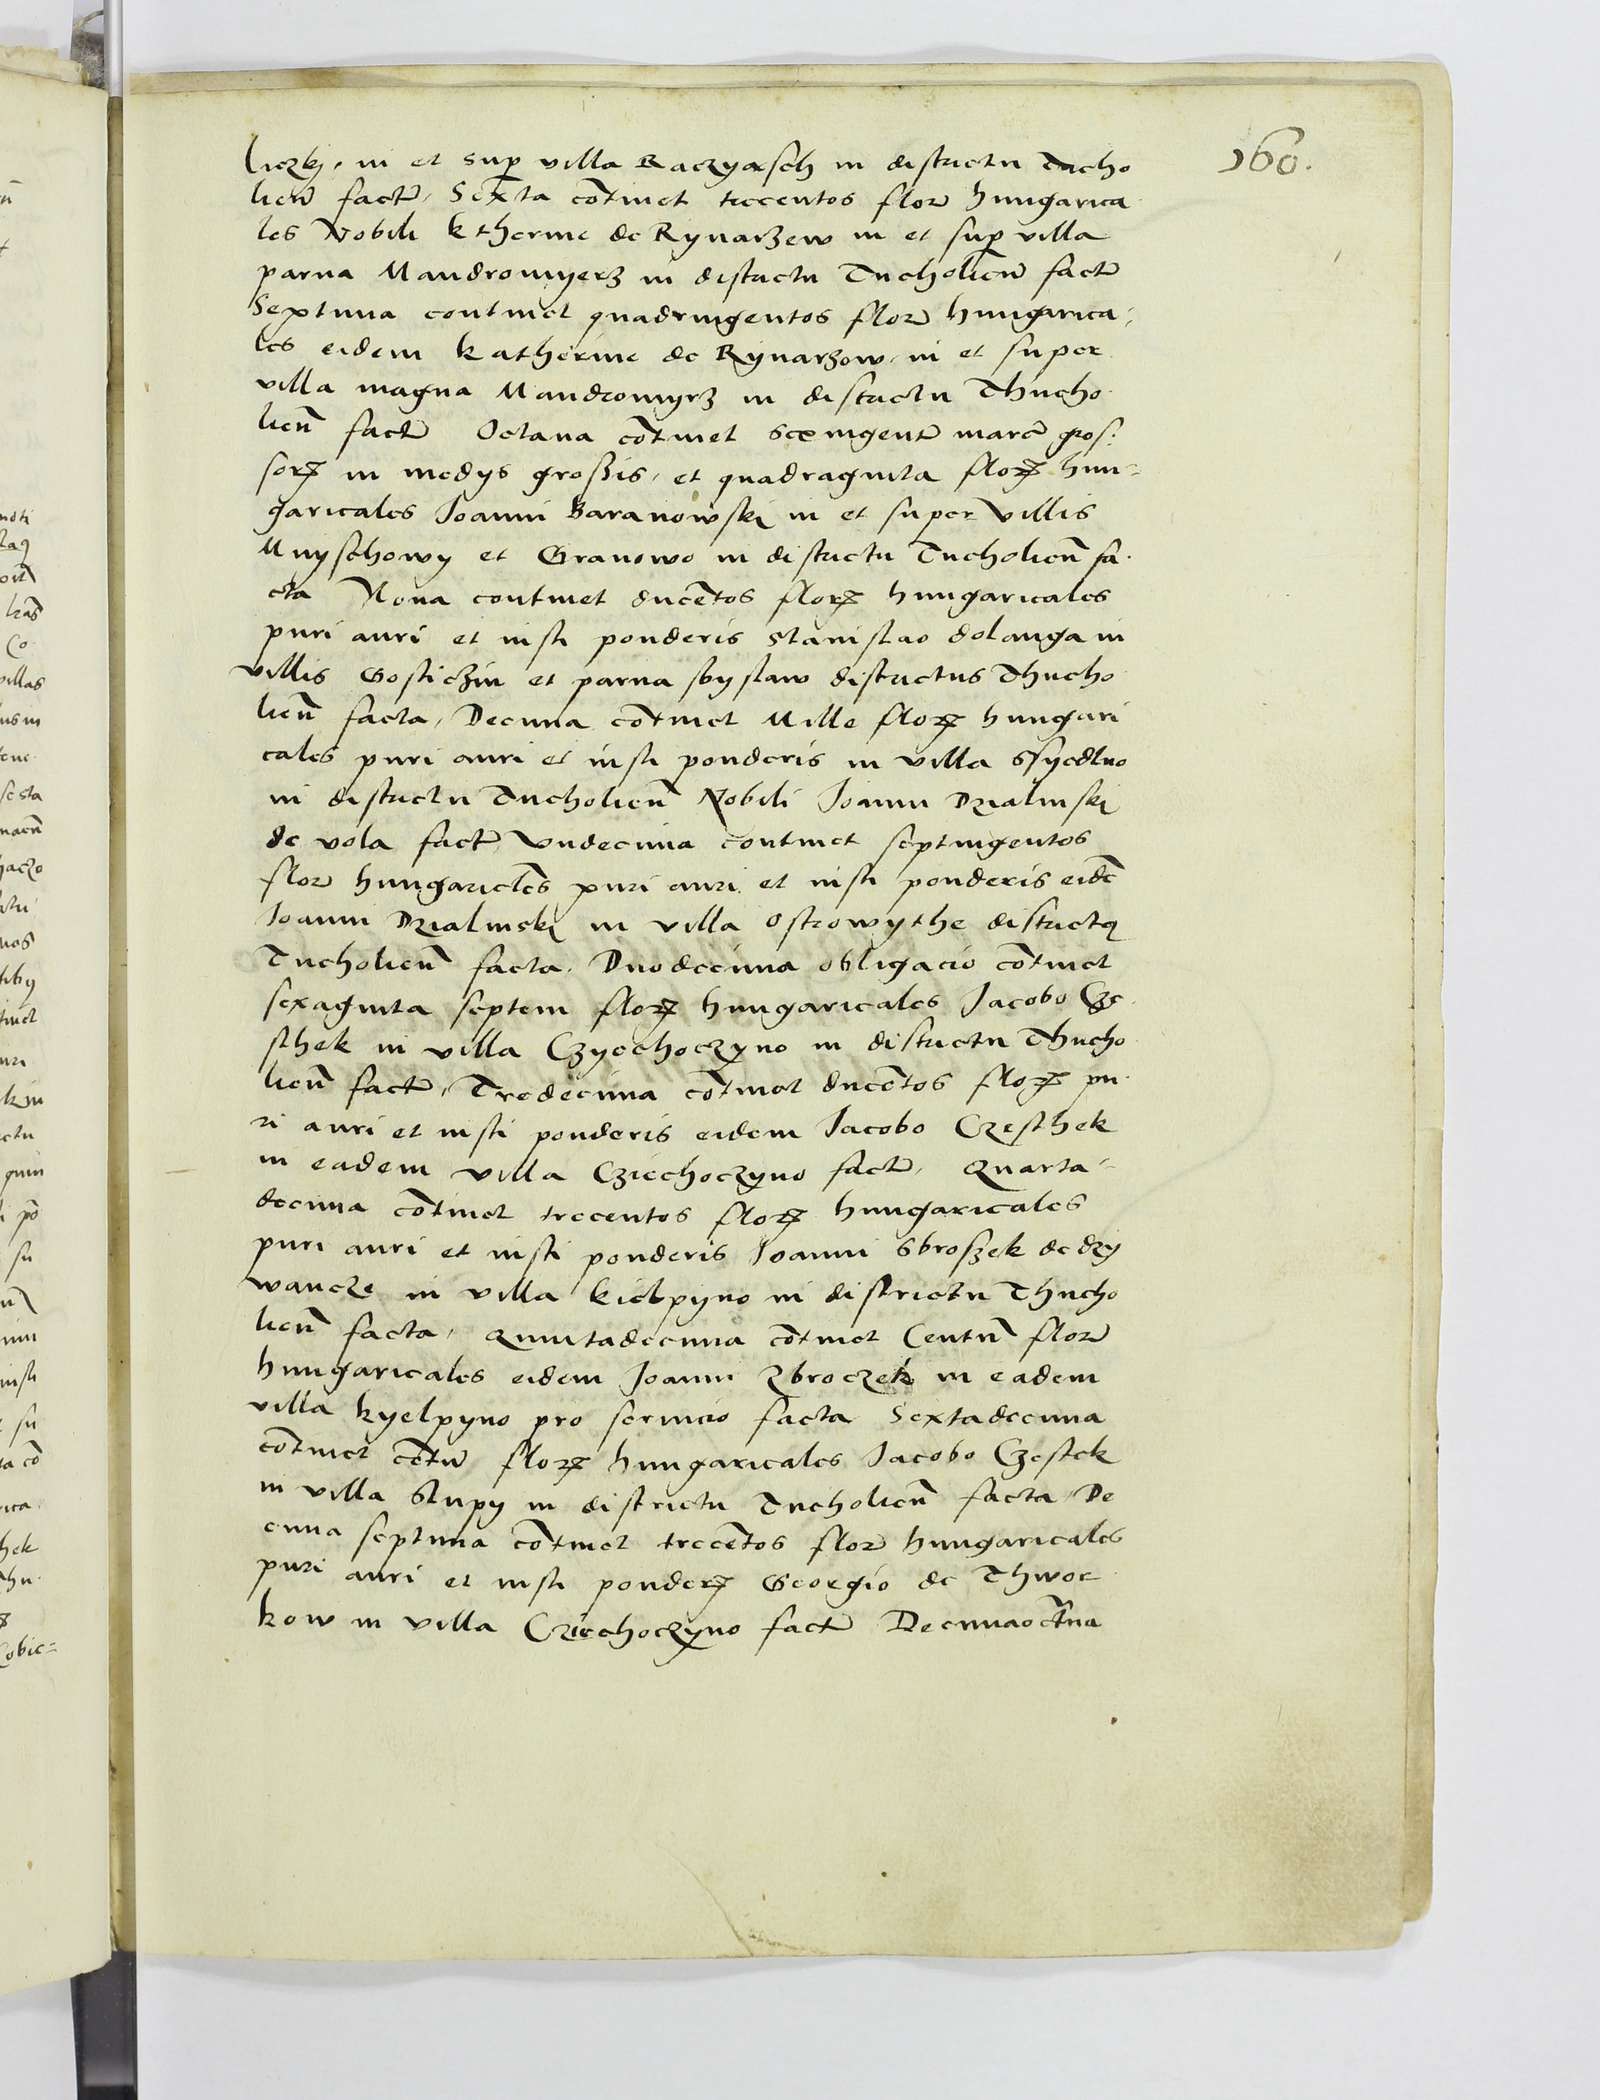 160.
liczkj, in et sup villa Raczyasch in districtu Tucho
lien̄ fact, Sexta cōtinet trecentos flor hungarica
les Nobili Ktherine de Rynarzew in et sup villa
parua Mandromyerz in districtu Tucholien̄ fact
Septima continet quadringentos flor hungarica,
les eidem Katherine de Rynarzow, in et super
villa magna Mandromyrz in districtu Thucho
lien̄ fact Octaua cōtinet sexingent marc gros:
sorꝝ in medys grossis, et quadraginta florꝝ hun=
garicales Joanni Baranowski in et super villis
Mnyschowy et Granowo in districtu Tucholien̄ fa
cta Nona continet ducētos florꝝ hungaricales
puri auri et iusti ponderis Stanislao dolanga in
villis Gosticzin et parua sbyslaw districtus Thucho
lien̄ facta, Decima cōtinet Mille florꝝ hungari
cales puri auri et iusti ponderis in villa Ssyedlno
in districtu Tucholien̄ Nobili Joanni Dzialinski
de vola fact, vndecima continet septingentos
flor hungaricles puri auri et iusti ponderis eidē
Joanni Dzialinski in villa Ostrowythe districtꝗ
Tucholien̄ facta, Duodecima obligacio cōtinet
sexaginta septem florꝝ hungaricales Jacobo Cze
sthek in villa Czyechoczyno in districtu Thucho
lien̄ fact, Tredecima cōtinet ducētos florꝝ pu
ri auri et iusti ponderis eidem Jacobo Czesthek
in eadem villa Cziechoczyno fact, Quarta=
decima cōtinet trecentos florꝝ hungaricales
puri auri et iusti ponderis Joanni Sbroszek de dzy
wancze in villa Kielpyno in districtu Thucho
lien̄ facta, Quintadecima cōtinet Centū flor
hungaricales eidem Joanni Zbroczek in eadem
villa Kyelpyno pro seruicio facta Sextadecima
cōtinet cētū florꝝ hungaricales Jacobo Czestek
in villa Slupy in districtu Tucholien̄ facta, De
cima septima cōtinet trecētos flor hungaricales
puri auri et iusti ponderꝝ Georgio de Thwor
kow in villa Cziechoczyno fact Decimaoctaua